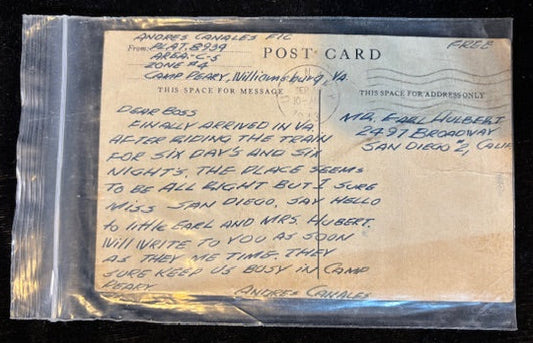 ANDRES CANALES F1C
From: PLAT. 8939
AREA-C-5
ZONE #4
CAMP PEARY, Williamsburg, VA.
POST CARD
FREE
THIS SPACE FOR MESSAGE
THIS SPACE FOR ADDRESS ONLY
SEP
10-AM
DEAR BOSS
FINALLY ARRIVED IN VA.
AFTER RIDING THE TRAIN
FOR SIX DAY'S AND SIX
NIGHTS. THE PLACE SEEMS
TO BE ALL RIGHT BUT I SURE
MISS SAN DIEGO, SAY HELLO
to little EARL AND MRS. HUBERT.
Will WRITE TO YOU AS SOON
AS THEY ME TIME. THEY
SURE KEEP US BUSY IN CAMP
PEARY
ANDRES CANALES
MR. EARL HULBERT
2497 BROADWAY
SAN DIEGO #2, CALIF